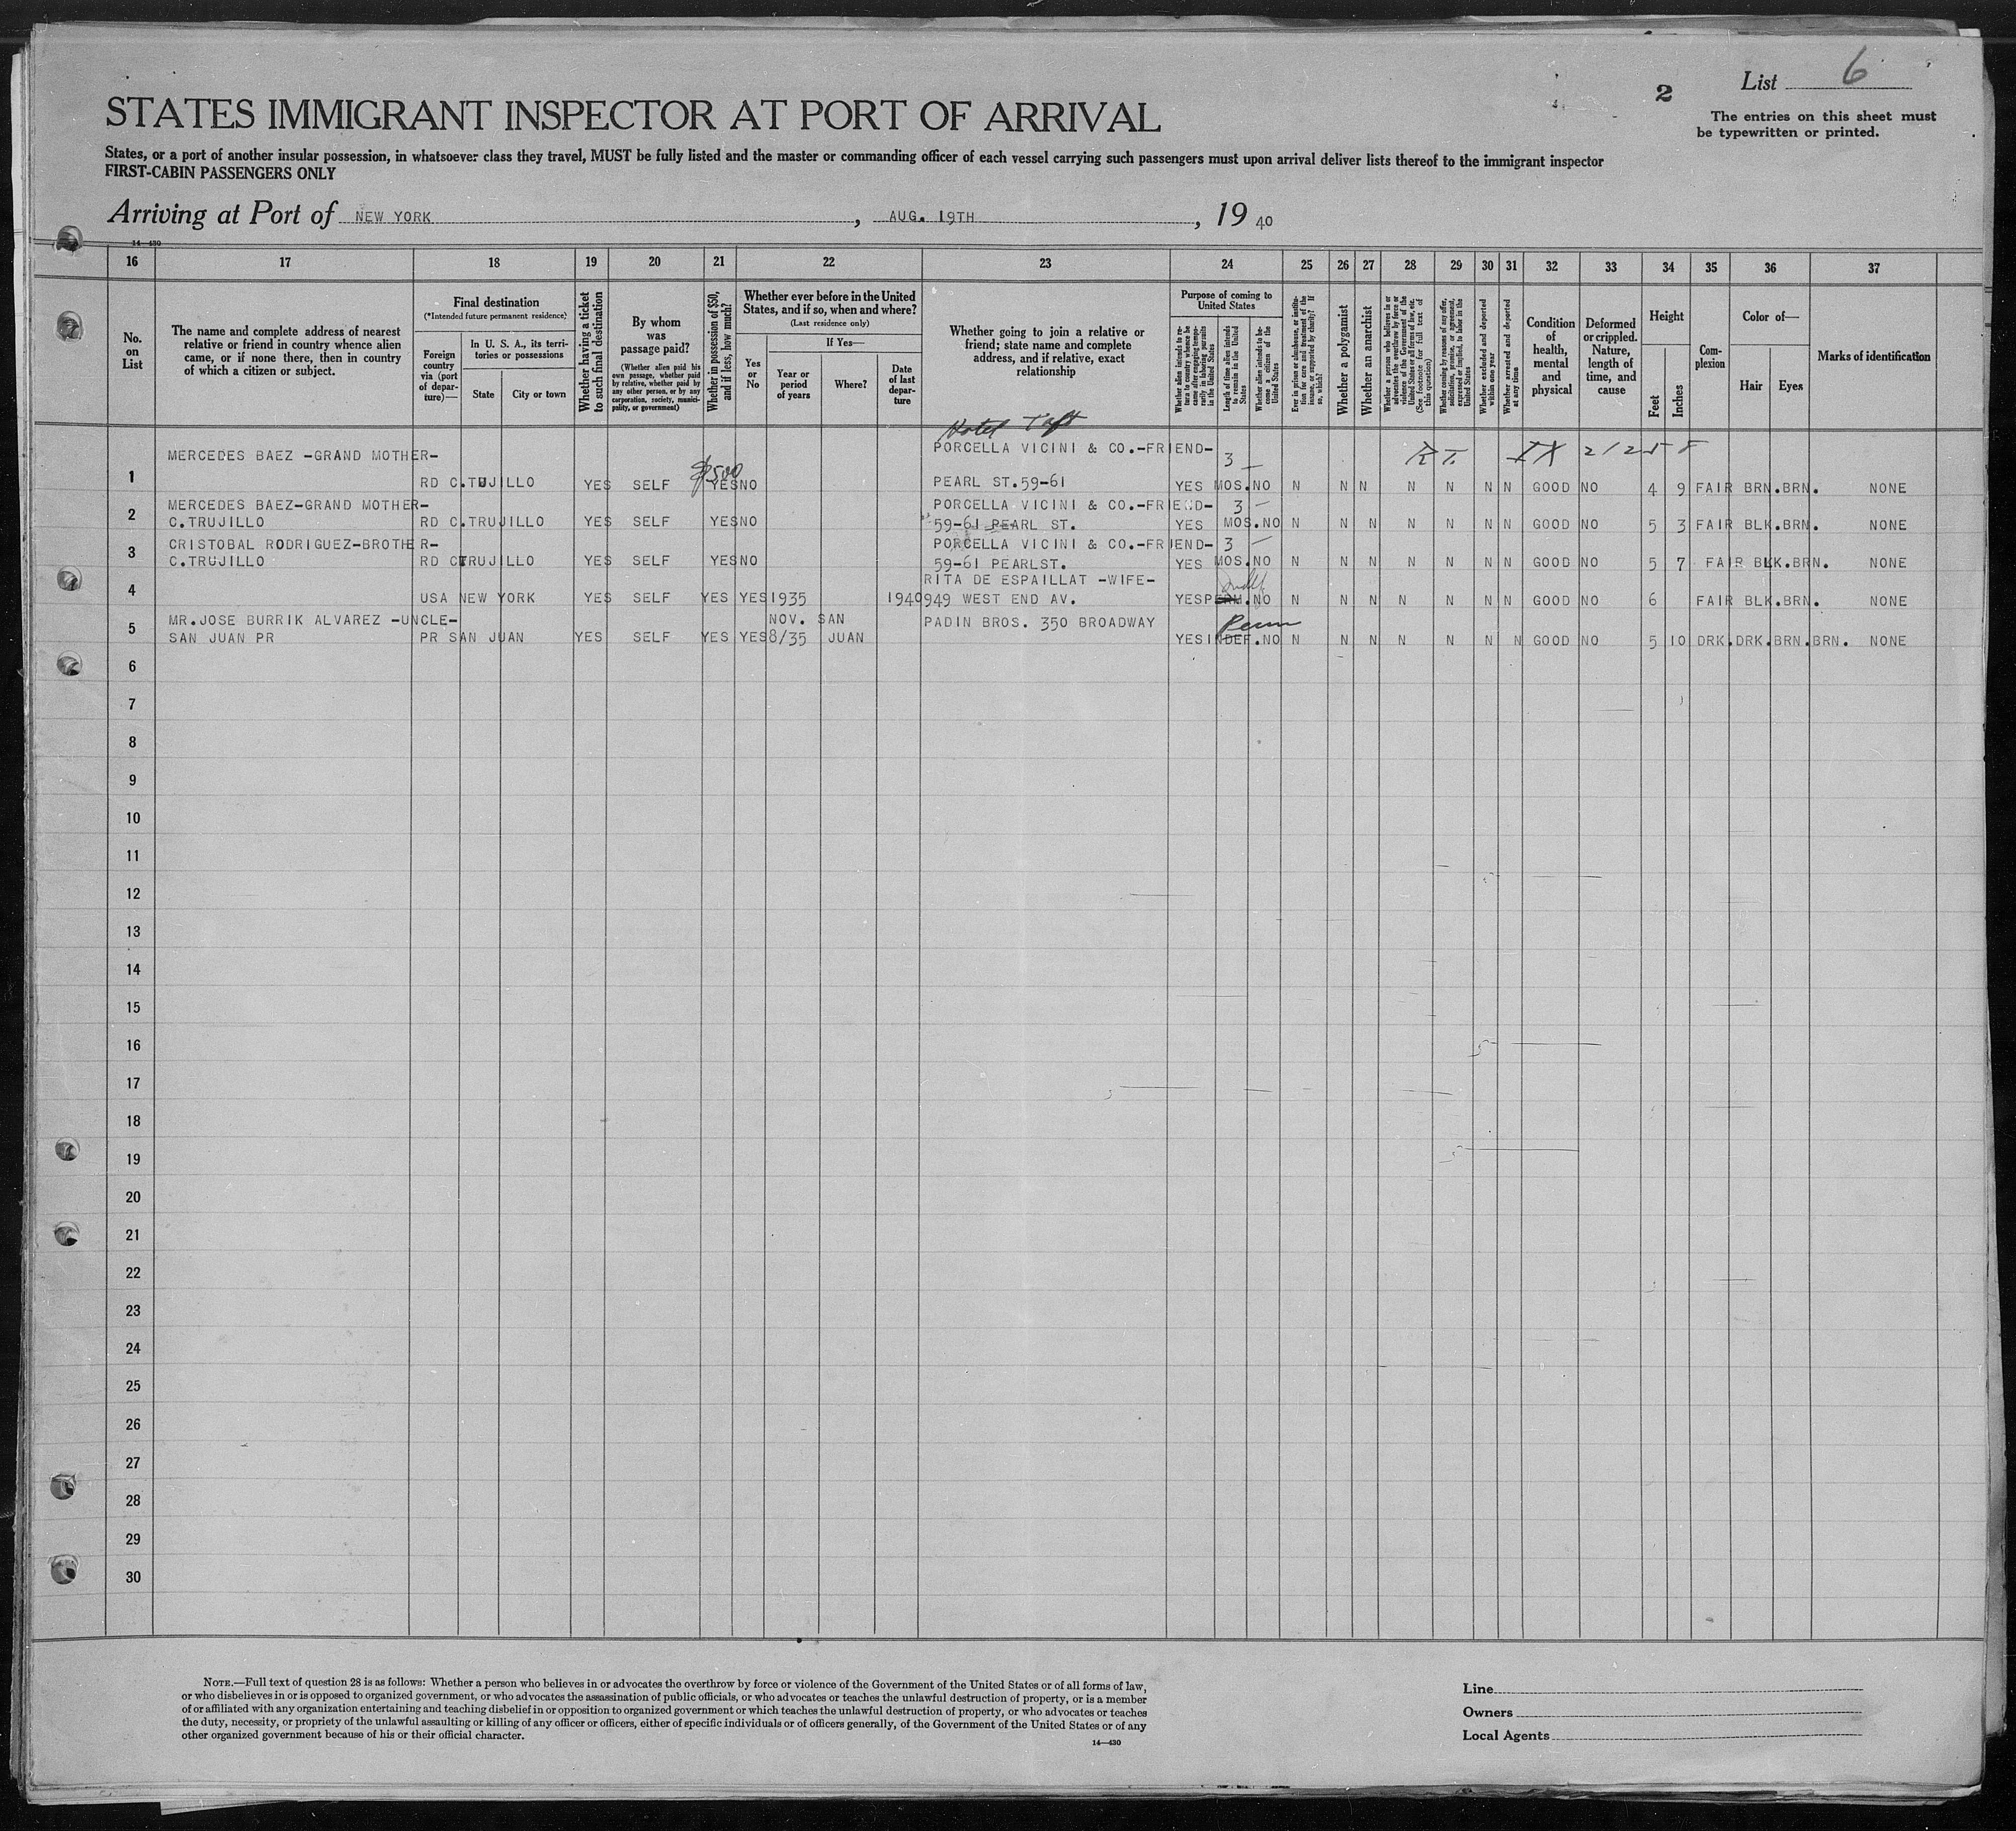 2 List 6
STATES IMMIGRANT INSPECTOR AT PORT OF ARRIVAL
The entries on this sheet must
be typewritten or printed.
States, or a port of another insular possession, in whatsoever class they travel, MUST be fully listed and the master or commanding officer of each vessel carrying such passengers must upon arrival deliver lists thereof to the immigrant inspector
FIRST-CABIN PASSENGERS ONLY
Arriving at Port of NEW YORK, AUG. 19TH, 19 40
14—430
16 17 18 19 20 21 22 23 24 25 26 27 28 29 30 31 32 33 34 35 36 37
No. on List
The name and complete address of nearest relative or friend in country whence alien came, or if none there, then in country of which a citizen or subject.
Final destination
(*Intended future permanent residence)
Foreign country via (port of departure)—
In U. S. A., its territories or possessions
State
City or town
Whether having a ticket to such final destination
By whom was passage paid?
(Whether alien paid his own passage, whether paid by relative, whether paid by any other person, or by any corporation, society, municipality, or government)
Whether in possession of $50, and if less, how much?
Whether ever before in the United States, and if so, when and where?
(Last residence only)
Yes or No
If Yes—
Year or period of years
Where?
Date of last departure
Whether going to join a relative or friend; state name and complete address, and if relative, exact relationship
Purpose of coming to United States
Whether alien intends to return to country whence he came after engaging temporarily in laboring pursuits in the United States
Length of time alien intends to remain in the United States
Whether alien intends to become a citizen of the United States
Ever in prison or almshouse, or institution for care and treatment of the insane, or supported by charity? If so, which?
Whether a polygamist
Whether an anarchist
Whether a person who believes in or advocates the overthrow by force or violence of the Government of the United States or all forms of law, etc. (See footnote for full text of this question)
Whether coming by reason of any offer, solicitation, promise, or agreement, expressed or implied, to labor in the United States
Whether excluded and deported within one year
Whether arrested and deported at any time
Condition of health, mental and physical
Deformed or crippled. Nature, length of time, and cause
Height
Feet
Inches
Complexion
Color of—
Hair
Eyes
Marks of identification
Hotel Taft
MERCEDES BAEZ -GRAND MOTHER- PORCELLA VICINI & CO.-FRIEND- 3 — R.T. IX 2/258
1 RD C.TUJILLO YES SELF $500 YES NO PEARL ST.59-61 YES MOS.NO N N N N N N N GOOD NO 4 9 FAIR BRN.BRN. NONE
MERCEDES BAEZ-GRAND MOTHER- PORCELLA VICINI & CO.-FRIEND- 3 —
2 C.TRUJILLO RD C.TRUJILLO YES SELF YES NO 59-61 PEARL ST. YES MOS.NO N N N N N N N GOOD NO 5 3 FAIR BLK.BRN. NONE
CRISTOBAL RODRIGUEZ-BROTHER- PORCELLA VICINI & CO.-FRIEND- 3 —
3 C.TRUJILLO RD CTRUJILLO YES SELF YES NO 59-61 PEARLST. YES MOS.NO N N N N N N N GOOD NO 5 7 FAIR BLK.BRN. NONE
RITA DE ESPAILLAT -WIFE- Indef
4 USA NEW YORK YES SELF YES YES 1935 1940 949 WEST END AV. YES PERM.NO N N N N N N N GOOD NO 6 FAIR BLK.BRN. NONE
MR.JOSE BURRIK ALVAREZ -UNCLE- NOV. SAN PADIN BROS. 350 BROADWAY Perm
5 SAN JUAN PR PR SAN JUAN YES SELF YES YES 8/35 JUAN YES INDEF.NO N N N N N N N GOOD NO 5 10 DRK.DRK.BRN.BRN. NONE
6
7
8
9
10
11
12
13
14
15
16
17
18
19
20
21
22
23
24
25
26
27
28
29
30
NOTE.—Full text of question 28 is as follows: Whether a person who believes in or advocates the overthrow by force or violence of the Government of the United States or of all forms of law,
or who disbelieves in or is opposed to organized government, or who advocates the assassination of public officials, or who advocates or teaches the unlawful destruction of property, or is a member
of or affiliated with any organization entertaining and teaching disbelief in or opposition to organized government or which teaches the unlawful destruction of property, or who advocates or teaches
the duty, necessity, or propriety of the unlawful assaulting or killing of any officer or officers, either of specific individuals or of officers generally, of the Government of the United States or of any
other organized government because of his or their official character.
14—430
Line
Owners
Local Agents